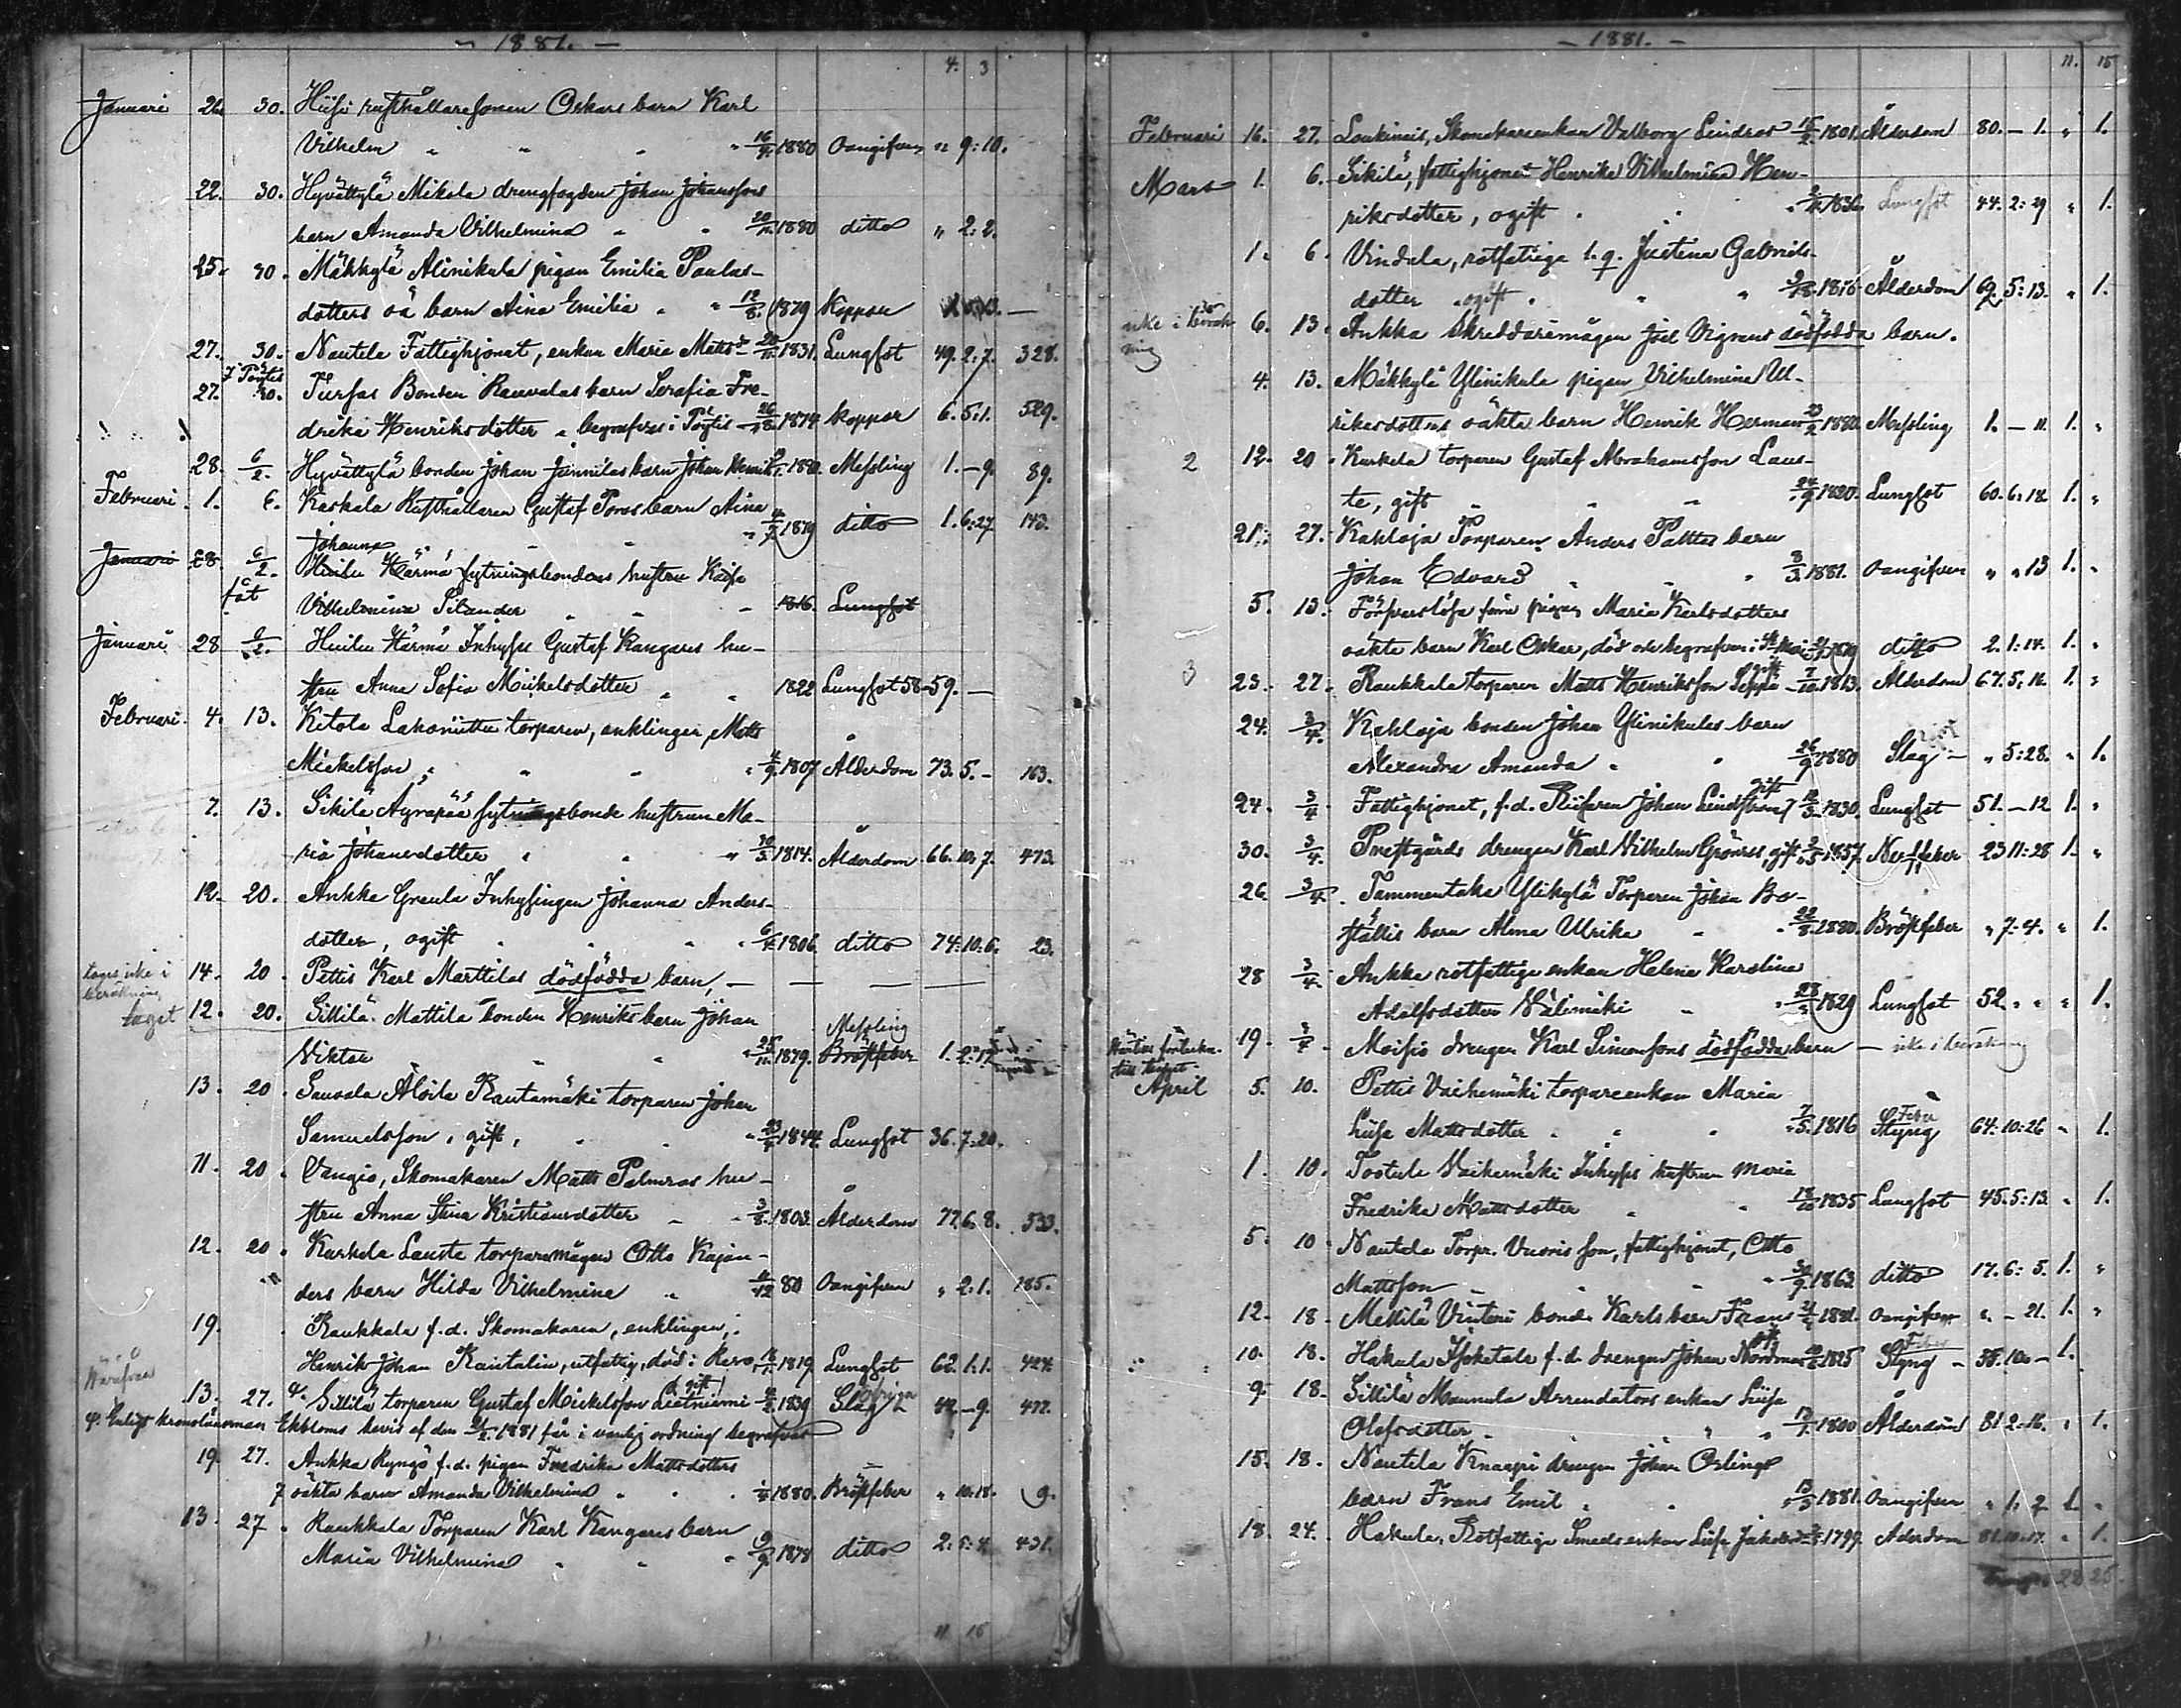 - 1881. -
4. 3
Januari 26. 30. Hiisi rusthållaresonen Oskars barn Karl
Vilhelm 16/9. 1880 Oangifven " 9:10.
22. 30. Hyvättylä Mikola drengfogden Johan Johanssons
barn Amanda Vilhelmina 20/11. 1880 ditto " 2:2.
25. 30. Mäkkylä Alinikula pigan Emilia Paulus-
dotters oä barn Aina Emilia 12/8. 1879 Koppor
27. 30. Nautela Fattighjonet, enkan Maria Matsd 20/11. 1831. Lungsot 49. 2:7. 328.
i Töytis
27. 30. Tursas Bonden Rauvalas barn Serafia Fre-
drika Henriksdotter begrafves i Töytis 26/8. 1874 koppor 6. 5:1. 529.
28. 6/2. Hyvättylä bonden Johan Jännilas barn Johan Henrik 1880. Messling 1. - 9. 89.
Februari 1. 6. Kaskala Rusthållaren Gustaf Poros barn Aina
Johanna 4/7. 1879 ditto 1. 6:27 143.
Januari 28 6/2. Huilu Härmä sytningsbondens hustru Kaisa
Vilhelmina Silander 1816. Lungsot
Januari 28 6/2. Huilu Härmä Inhyses Gustaf Kangares hu-
stru Anna Sofia Mickelsdotter 1822 Lungsot 58-59. -
Februari. 4. 13. Ketola Lakoniittu torparen, enklingen Matts
Mickelsson 4/9. 1807 Ålderdom 73. 5. - 163.
7. 13. Sikilä Äyräpää sytningsbonde hustrun Ma-
ria Johansdotter 30/3. 1814. Ålderdom 66. 10:7. 473.
12. 20. Ankka Greula Inhysingen Johanna Anders-
dotter, ogift 6/4. 1806. ditto 74:10:6. 23.
tages icke i beräkning 14. 20. Pettis Karl Marttilas dödfödda barn, - - - -
taget 12. 20. Sillilä Mattila bonden Henriks barn Johan
Messling
Viktor 25/11. 1879. Bröstfeber 1. 2:17
13. 20. Sauvala Äloila Rautamäki torparen Johan
Samuelsson, gift, 23/6. 1844. Lungsot 36. 7:20.
11. 20. Vangio, Skomakaren Matts Palmros hu-
stru Anna Stina Kristiansdotter 3/8. 1803. Ålderdom 77. 6. 8. 533.
12. 20. Kurkela Lauste torparemågen Otto Kajan-
ders barn Hilda Vilhelmina 11/12 80 Oangifven " 2:1. 185.
19. Raukkala f.d. Skomakaren, enklingen,
Henrik Johan Rautalin, utfattig, död i Reso, 18/1. 1819 Lungsot 62. 1:1. 424.
13. 27. Sillilä torparen Gustaf Mickelsson Lietniemi gift 1839 Slag 42. - 9. 477.
Enligt kronolänsman Ekbloms bevis af den 21/2. 1881 får i vanlig ordning begrafvas
19. 27. Ankka Ryngö f.d. pigan Fredrika Mattsdotters
oäkta barn Amanda Vilhelmina 1880. Bröstfeber " 10:18. 9.
13. 27. Raukkala Torparen Karl Kangares barn
Maria Vilhelmina 9/9. 1878 ditto 2. 5:4. 431.
11 15
- 1881. -
11. 15
Februari 16. 27. Loukinais, Skomakareenkan Valborg Lindros 15/2. 1801. Ålderdom 80. - 1. " 1.
Mars 1. 6. Sikilä, fattighjonet Henrika Vilhelmina Hen-
riksdotter, ogift 1836. Lungsot 44. 2:29 " 1.
1. 6. Vindala, rotfattiga l.q. Justina Gabriels-
dotter ogift Ålderdom 5:13. " 1.
icke i beräkning 6. 13. Ankka skreddaremågen Joel Vigrens dödfödda barn.
4. 13. Mäkkylä Ylinikula pigan Vilhelmina Ul-
riksdotters oäkta barn Henrik Herman 23/2. 1880. Messling 1. - 11. 1. "
2 12. 20. Kurkela torparen Gustaf Abrahamsson Laus-
te, gift 24/9. 1820. Lungsot 60. 6:18. 1. "
21. 27. Kahloja Torparen Anders Palttas barn
Johan Edvard 8/3. 1881. Oangifven " " 13 1. "
5. 13. Försvarslösa förra pigan Maria Karlsdotters
oäkta barn Karl Oskar, död och begrafven i St. Marie 1879 ditto 2. 1:14. 1. "
3 23. 27. Raukkala torparen Matts Henriksson Seppä gift 7/10. 1813. Ålderdom 67. 5:16. 1. "
24. 3/4. Kahloja bonden Johan Ylinikulas barn
Alexandra Amanda 26/9. 1880 Slag - " 5:28. " 1.
24. 3/4. Fattighjonet, f.d. Reservn Johan Lindström gift 12/3. 1830. Lungsot 51. - 12 1. "
30. 3/4. Prestgårds drengen Karl Vilhelm Grönros, gift 1857. Nerffeber 23 11:28 1. "
26. 3/4. Tammentaka Ylikylä Torparen Johan Bo-
ställis barn Alma Ulrika 22/8. 1880. Bröstfeber " 7:4. " 1.
28 3/4. Ankka rotfattige enkan Helena Karolina
Adolfsdotter Välimäki 28/3. 1829 Lungsot 52. " " " 1.
19. 3/4. Moisio drengen Karl Simonssons dödfödda barn - icke i beräkning
April 5. 10. Pettis Vaihemäki torpareenkan Maria
Feber
Luisa Mattsdotter 7/5. 1816 Styng 64. 10:26 " 1.
1. 10. Tostula Vaihemäki Inhyses hustrun Maria
Fredrika Mattsdotter 18/10 1835 Lungsot 45. 5:13. " 1.
5. 10. Nautela Torpr. Vuoris son, fattighjonet, Otto
Mattsson 30/9. 1863. ditto 17. 6:5. 1. "
12. 18. Mellilä Vinteri bonde Karls barn Frans 1881. oangifven " - 21. 1. "
Feber
10. 18. Hakula Isotalo f.d. drengen Johan Nordman 1825 Styng - 55. 10. - 1.
9. 18. Sillilä Maunula Arrendators enkan Luisa
Olofsdotter 1800 Ålderdom 81. 2:16. " 1.
15. 18. Nautela Knaapi drengen Johan Örlings
barn Frans Emil 13/3. 1881. Oangifven " 1:2 1. "
18. 24. Hakula, Rotfattige Smedsenkan Luisa Jakobsd. 1799. Ålderdom 81. 10:17. " 1.
22 25.